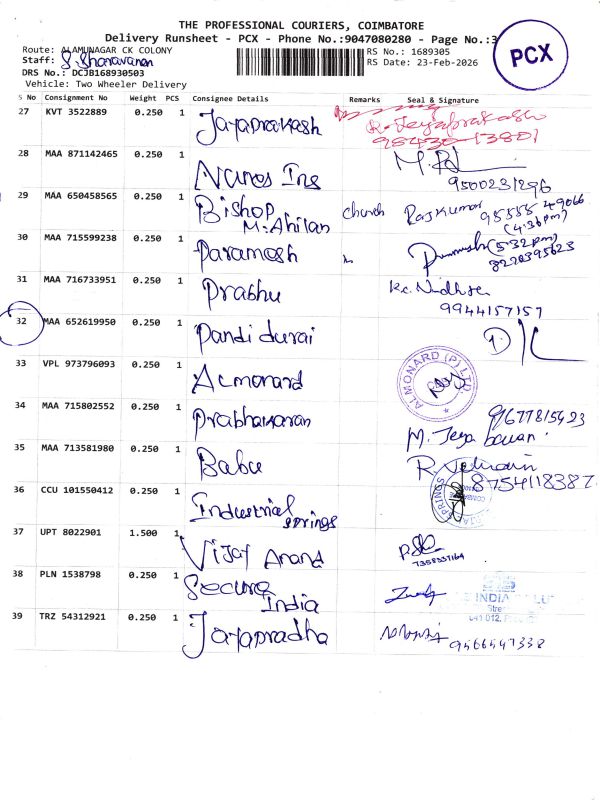 THE PROFESSIONAL COURIERS, COIMBATORE
Delivery Runsheet - PCX - Phone No.:9047080280 - Page No.:3
PCX
Route: ALAMUNAGAR CK COLONY
RS No.: 1689305
Staff: S. Sharavanan
RS Date: 23-Feb-2026
DRS No.: DCJB168930503
Vehicle: Two Wheeler Delivery
S No Consignment No Weight PCS Consignee Details Remarks Seal & Signature
27 KVT 3522889 0.250 1 Jayaprakash R. Jeyaprakash
98430-13801
28 MAA 871142465 0.250 1 Naros Ins
9500231296
29 MAA 650458565 0.250 1 Bishop church Rajkumar 95555 49066
M. Ahilan (4:36pm)
30 MAA 715599238 0.250 1 Paramesh (5:32pm)
8220395623
31 MAA 716733951 0.250 1 Prabhu
9944157157
32 MAA 652619950 0.250 1 Pandi durai
33 VPL 973796093 0.250 1 Almonard ALMONARD (P) LTD.
34 MAA 715802552 0.250 1 Prabhakaran 9677815423
M. Jeya
35 MAA 713581980 0.250 1 Babu
8754118387
36 CCU 101550412 0.250 1 Industrial
springs SPRINGS
37 UPT 8022901 1.500 1 Vijay Anand
7358537164
38 PLN 1538798 0.250 1 Secure
India INDIA
641 012
39 TRZ 54312921 0.250 1 Jayapradha 9566547338